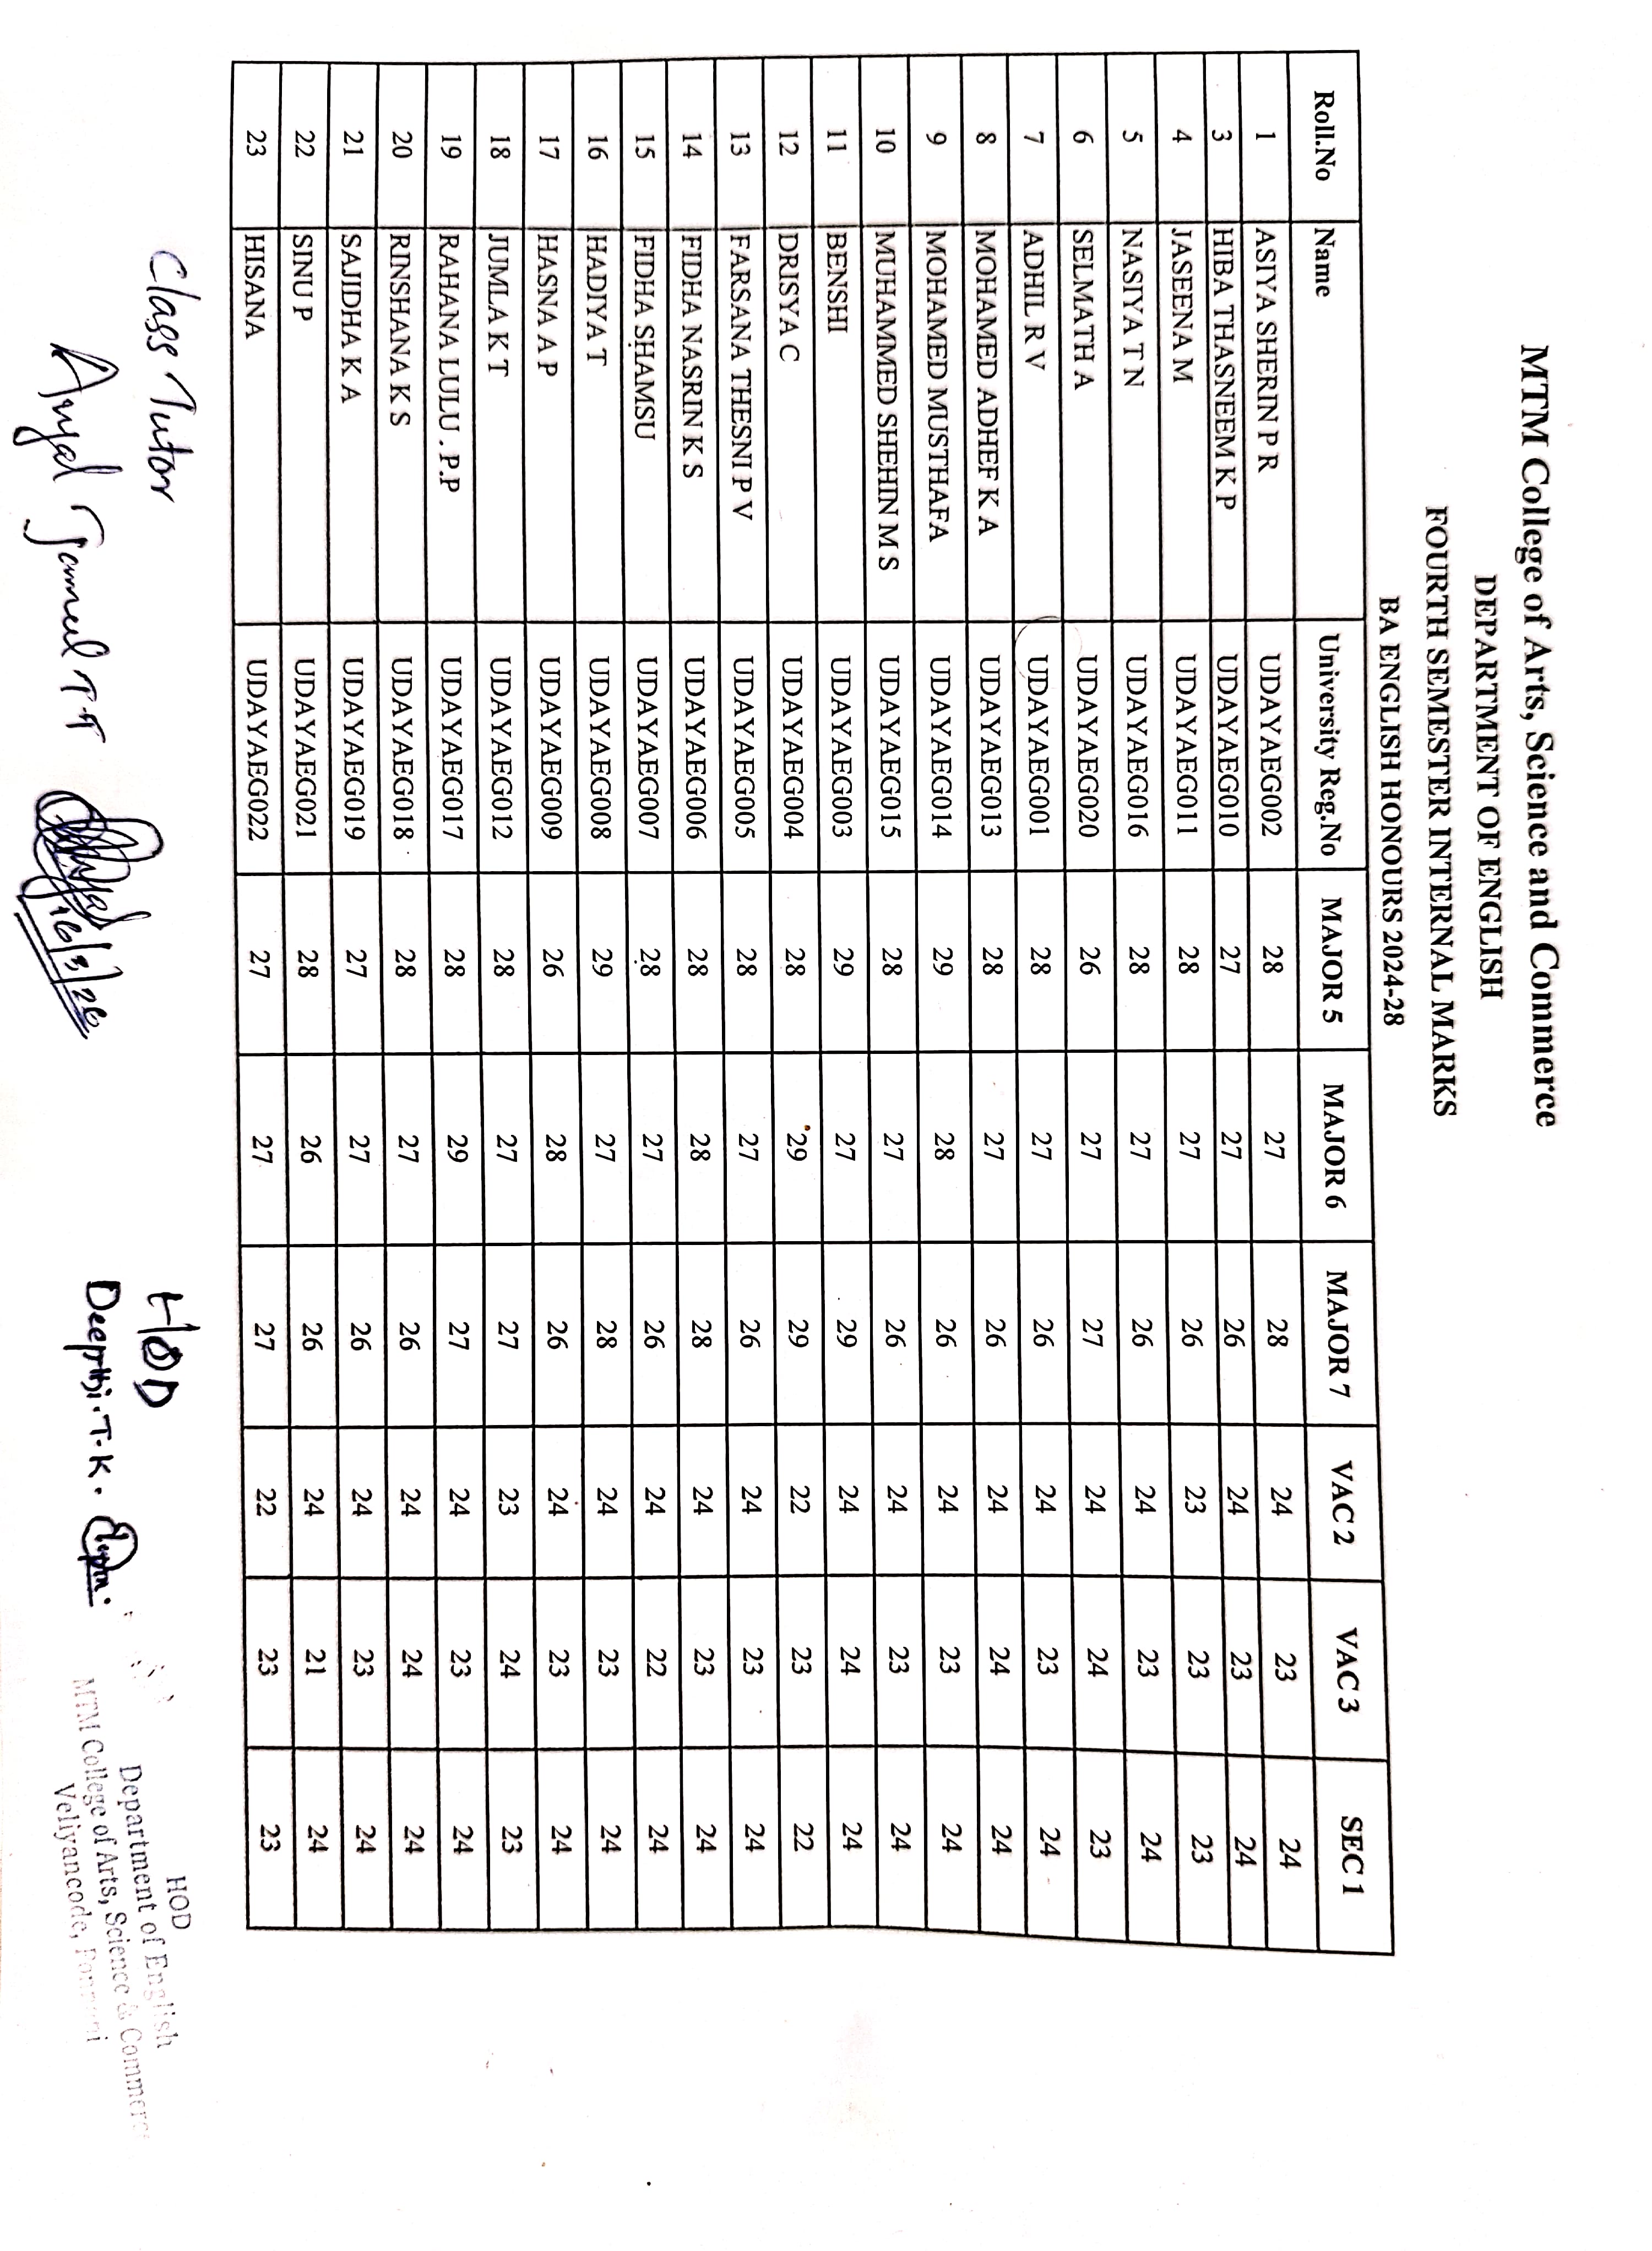 MTM College of Arts, Science and Commerce
DEPARTMENT OF ENGLISH
FOURTH SEMESTER INTERNAL MARKS
BA ENGLISH HONOURS 2024-28
Roll.No Name University Reg.No MAJOR 5 MAJOR 6 MAJOR 7 VAC 2 VAC 3 SEC 1
1 ASIYA SHERIN P R UDAYAEG002 28 27 28 24 23 24
3 HIBA THASNEEM K P UDAYAEG010 27 27 26 24 23 24
4 JASEENA M UDAYAEG011 28 27 26 23 23 23
5 NASIYA T N UDAYAEG016 28 27 26 24 23 24
6 SELMATH A UDAYAEG020 26 27 27 24 24 23
7 ADHIL R V UDAYAEG001 28 27 26 24 23 24
8 MOHAMED ADHEF K A UDAYAEG013 28 27 26 24 24 24
9 MOHAMED MUSTHAFA UDAYAEG014 29 28 26 24 23 24
10 MUHAMMED SHEHIN M S UDAYAEG015 28 27 26 24 23 24
11 BENSHI UDAYAEG003 29 27 29 24 24 24
12 DRISYA C UDAYAEG004 28 29 29 22 23 22
13 FARSANA THESNI P V UDAYAEG005 28 27 26 24 23 24
14 FIDHA NASRIN K S UDAYAEG006 28 28 28 24 23 24
15 FIDHA SHAMSU UDAYAEG007 28 27 26 24 22 24
16 HADIYA T UDAYAEG008 29 27 28 24 23 24
17 HASNA A P UDAYAEG009 26 28 26 24 23 24
18 JUMLA K T UDAYAEG012 28 27 27 23 24 23
19 RAHANA LULU . P.P UDAYAEG017 28 29 27 24 23 24
20 RINSHANA K S UDAYAEG018 28 27 26 24 24 24
21 SAJIDHA K A UDAYAEG019 27 27 26 24 23 24
22 SINU P UDAYAEG021 28 26 26 24 21 24
23 HISANA UDAYAEG022 27 27 27 22 23 23
Class Tutor
T T
16/3/26
HOD
Deepthi.T.K.
HOD
Department of English
MTM College of Arts, Science & Commerce
Veliyancode, Ponnani